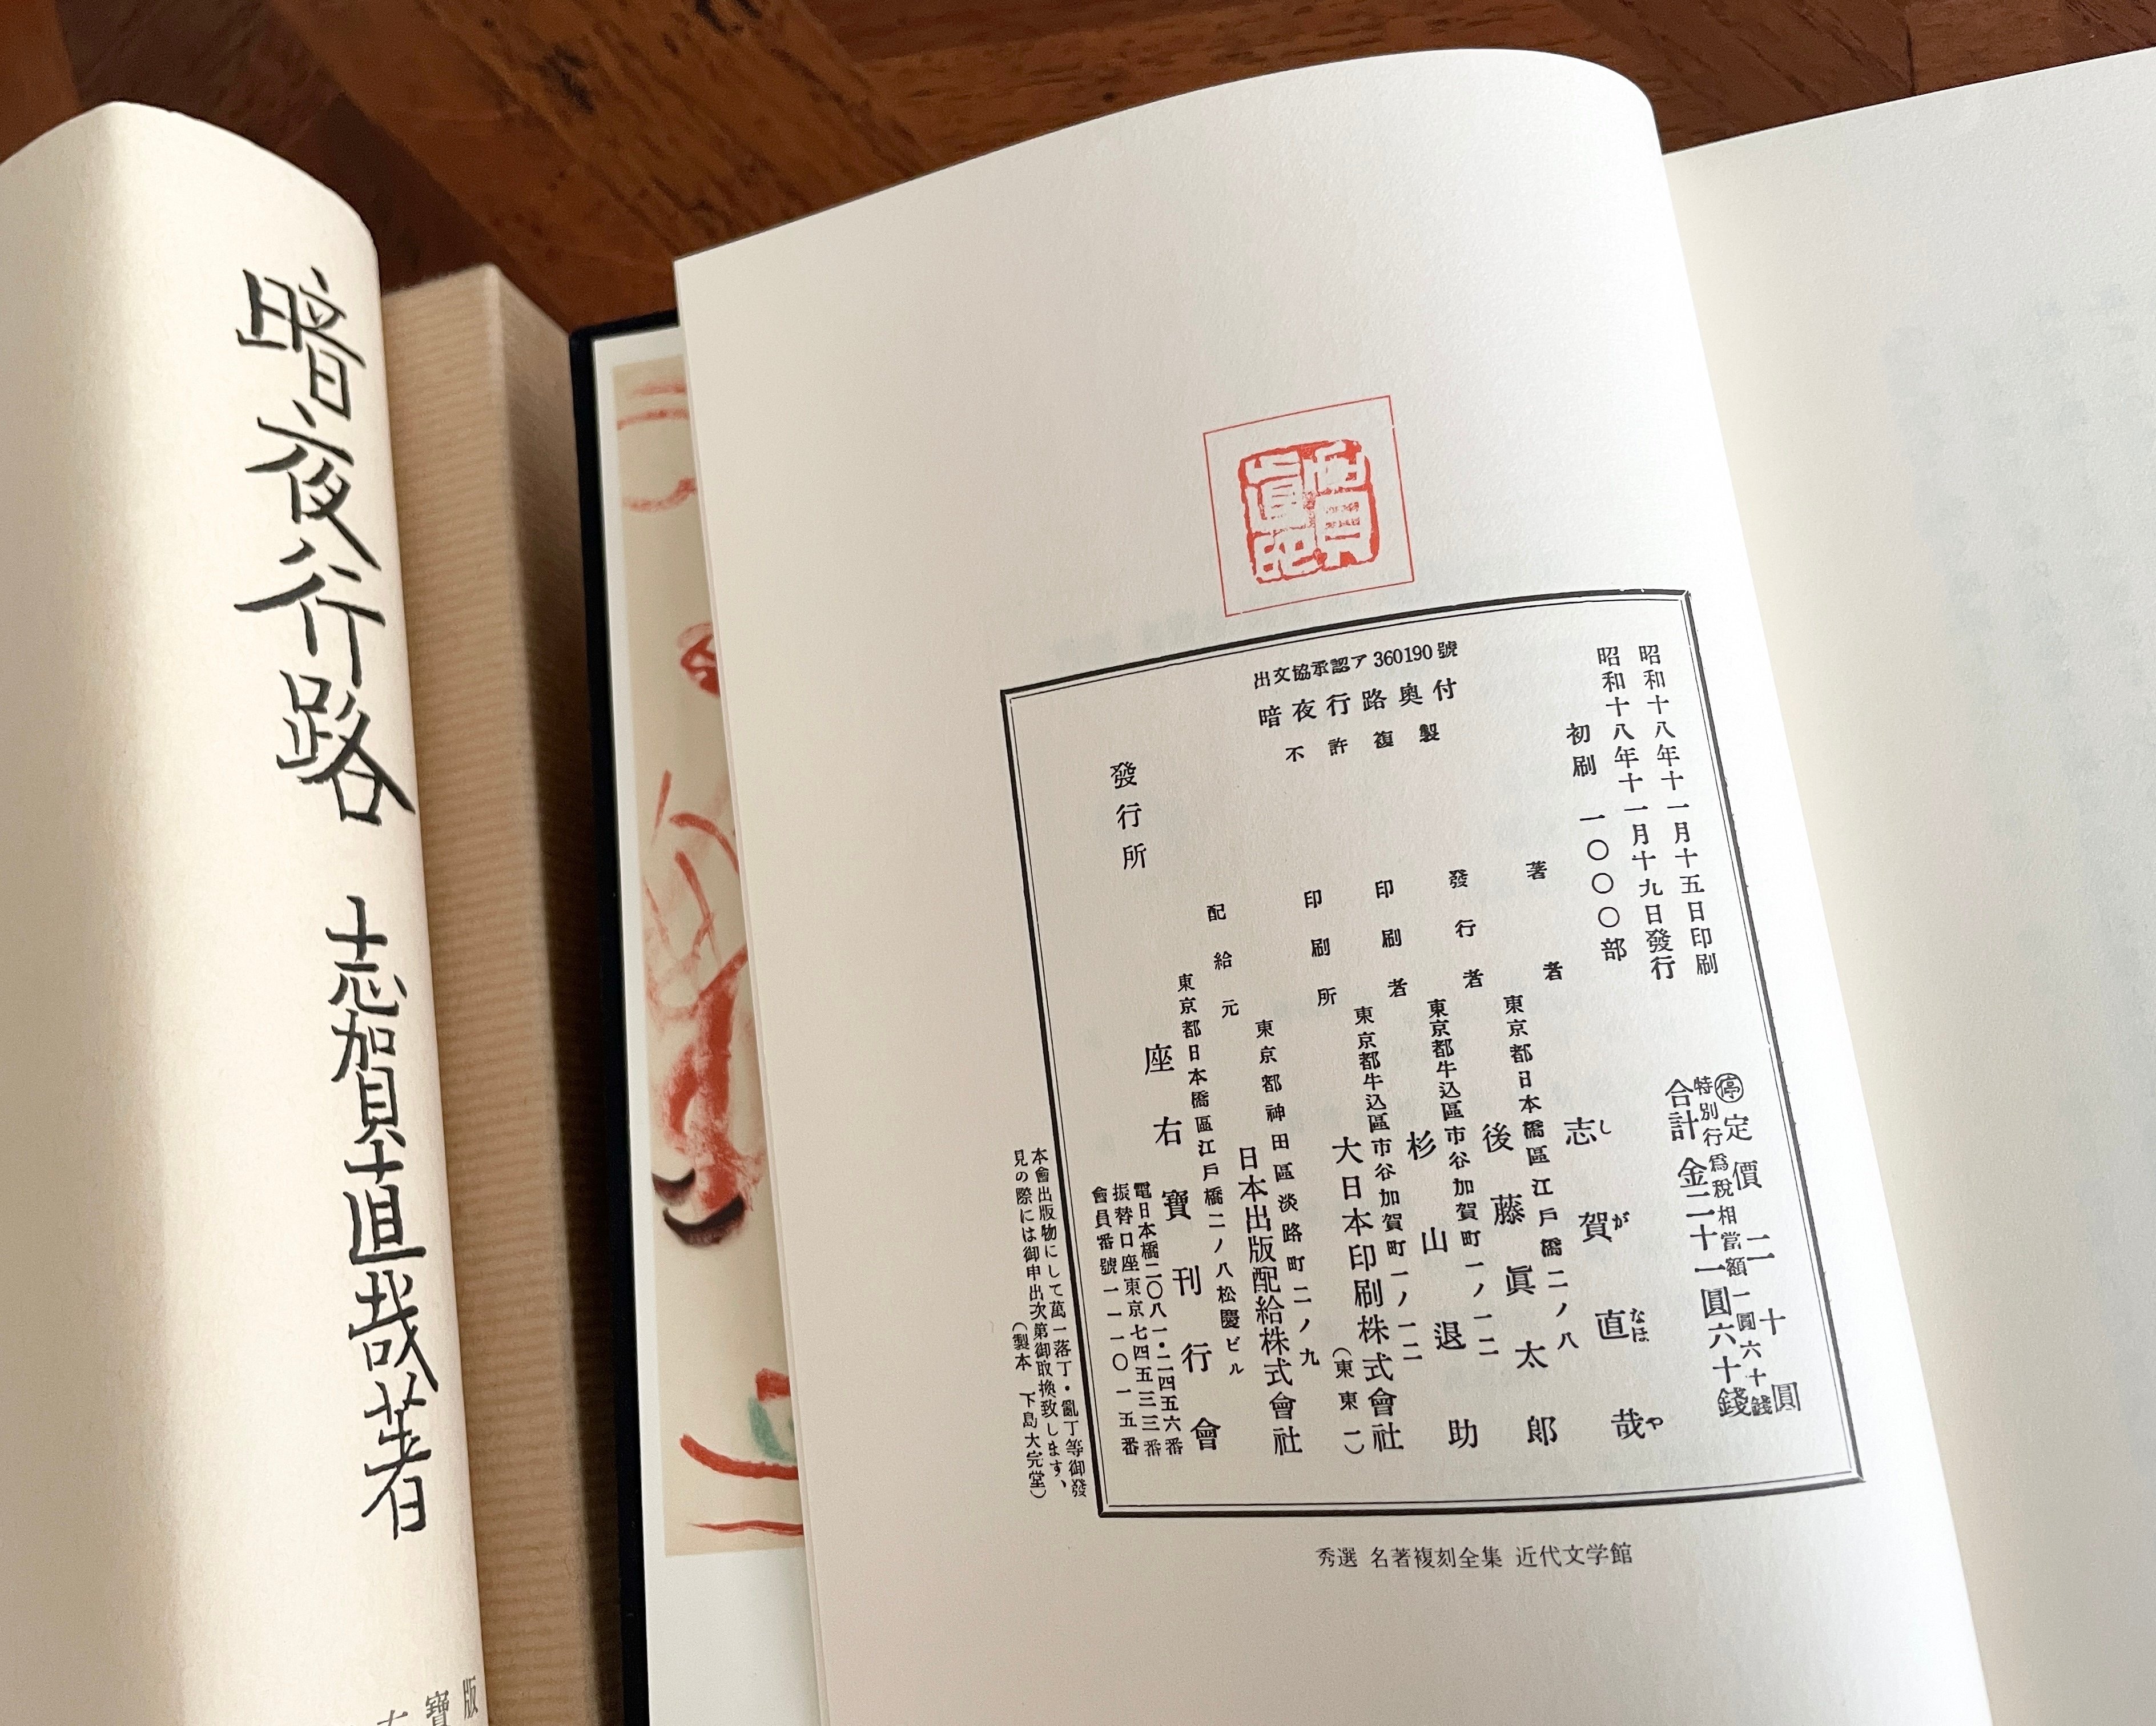 暗夜行路 志賀直哉著
寶版
出文協承認ア360190號
暗夜行路奥付
不許複製
昭和十八年十一月十五日印刷
昭和十八年十一月十九日發行
初刷 一〇〇〇〇部
㊡定價 二十圓
特別行爲税相當額一圓六十錢
合計金二十一圓六十錢
著者 志賀直哉
しがなほや
東京都日本橋區江戸橋二ノ八
發行者 後藤眞太郎
東京都牛込區市谷加賀町一ノ一二
印刷者 杉山退助
東京都牛込區市谷加賀町一ノ一二
印刷所 大日本印刷株式會社
(東東一)
東京都神田區淡路町二ノ九
配給元 日本出版配給株式會社
東京都日本橋區江戸橋二ノ八松慶ビル
發行所 座右寶刊行會
電日本橋二〇八一・二四五六番
振替口座東京七四五三三番
會員番號一一一〇一五番
本會出版物にして萬一落丁・亂丁等御發
見の際には御申出次第御取換致します、
(製本 下島大完堂)
秀選 名著複刻全集 近代文学館